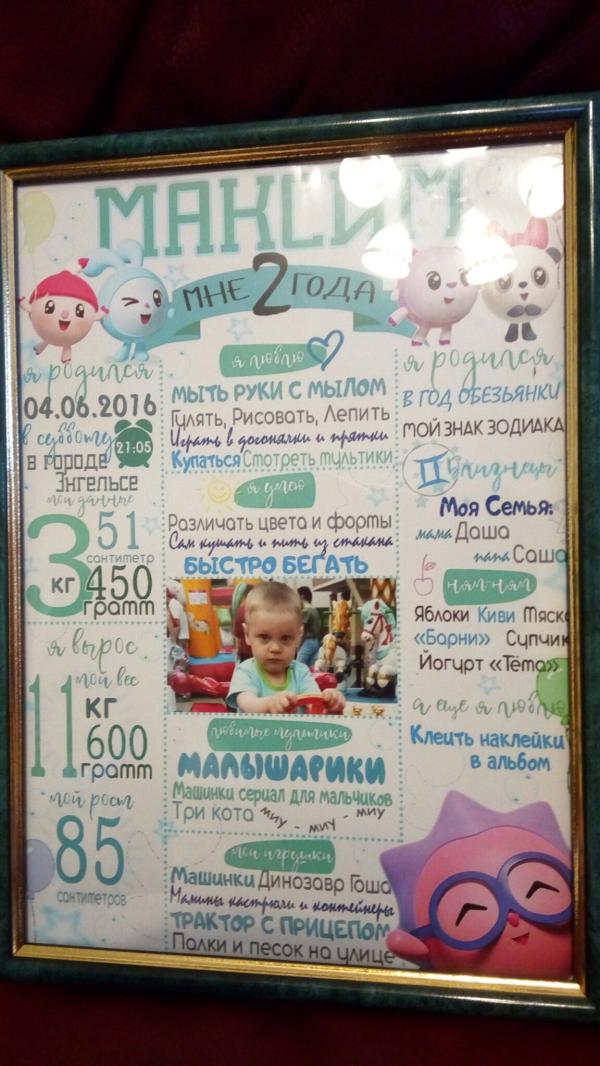 МАКСИМ
МНЕ 2 ГОДА
я родился
04.06.2016
в субботу
21:05
в городе
Энгельсе
мои данные
3 кг
51
сантиметр
450
грамм
я вырос
мой вес
11 кг
600
грамм
мой рост
85
сантиметров
я люблю
МЫТЬ РУКИ С МЫЛОМ
Гулять, Рисовать, Лепить
Играть в догонялки и прятки
Купаться Смотреть мультики
я умею
Различать цвета и формы
Сам кушать и пить из стакана
БЫСТРО БЕГАТЬ
любимые мультики
МАЛЫШАРИКИ
Машинки сериал для мальчиков
Три кота миу - миу - миу
мои игрушки
Машинки Динозавр Гоша
Мамины кастрюли и контейнеры
ТРАКТОР С ПРИЦЕПОМ
Палки и песок на улице
я родился
В ГОД ОБЕЗЬЯНКИ
МОЙ ЗНАК ЗОДИАКА
II Близнецы
Моя Семья:
мама Даша
папа Саша
ням-ням
Яблоки Киви Мяско
«Барни» Супчик
Йогурт «Тёма»
а еще я люблю
Клеить наклейки
в альбом